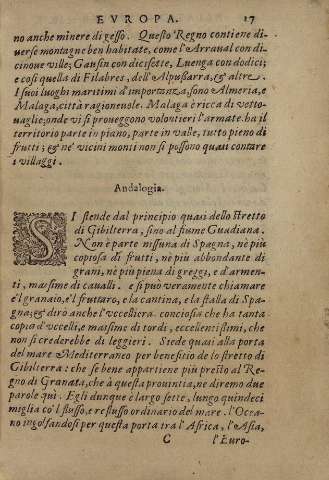 EVROPA. 17
no anche minere di gesso. Questo Regno contiene di-
uerse montagne ben habitate, come l'Arraual con di-
cinoue ville; Gausin con dicisette, Luenga con dodici;
e cosi quella di Filabres, dell'Alpußarra, & altre.
I suoi luoghi maritimi d'importanza, sono Almeria, e
Malaga, città ragioneuole. Malaga è ricca di vetto-
uaglie; onde vi si proueggono volontieri l'armate. ha il
territorio parte in piano, parte in valle, tutto pieno di
frutti; & ne' vicini monti non si possono quasi contare
i villaggi.
Andalogia.
SI stende dal principio quasi dello stretto
di Gibilterra, sino al fiume Guadiana.
Non è parte nissuna di Spagna, nè più
copiosa di frutti, nè più abbondante di
grani, nè più piena di greggi, e d'armen-
ti, massime di caualli. e si può veramente chiamare
è'l granaio, e'l fruttaro, e la cantina, e la stalla di Spa-
gna; & dirò anche l'vccelliera. conciosia che ha tanta
copia d'vccelli, e massime di tordi, eccellentissimi, che
non si crederebbe di leggieri. Siede quasi alla porta
del mare Mediterraneo per benefitio de lo stretto di
Gibilterra: che se bene appartiene più presto al Re-
gno di Granata, che à questa prouintia, ne diremo due
parole qui. Egli dunque è largo sette, lungo quindeci
miglia co'l flusso, e reflusso ordinario del mare. l'Ocea-
no ingolfandosi per questa porta tra l'Africa, l'Asia,
C l'Euro-